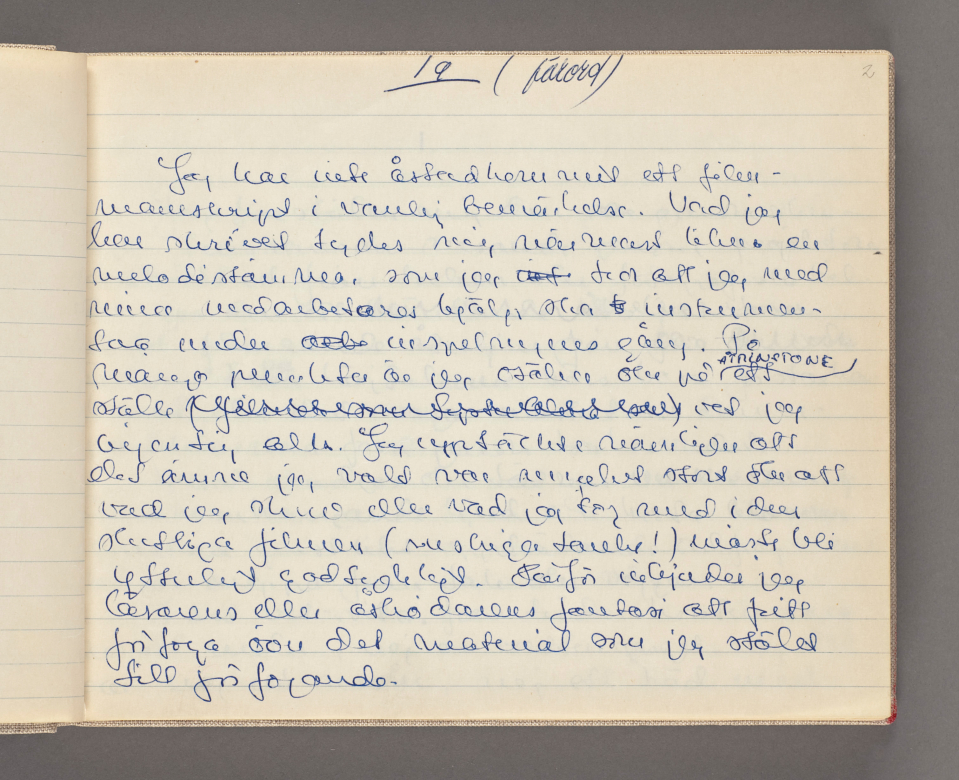 1a (förord)
2
Jag har inte åstadkommit ett film-
manuskript i vanlig bemärkelse. Vad jag
har skrivit tycks mig närmast likna en
melodistämma, som jag tror att jag med
mina medarbetares hjälp ska instrumen-
tera under inspelningens gång. På
många punkter är jag osäker och på
ÅTMINSTONE
ett
ställe vet jag
ingenting alls. Jag upptäckte nämligen att
det ämne jag valt var mycket stort och att
vad jag skrev eller vad jag tog med i den
slutliga filmen (ruskiga tanke!) måste bli
ytterligt godtyckligt. Därför inbjuder jag
läsarens eller åskådarens fantasi att fritt
förfoga över det material som jag ställt
till förfogande.